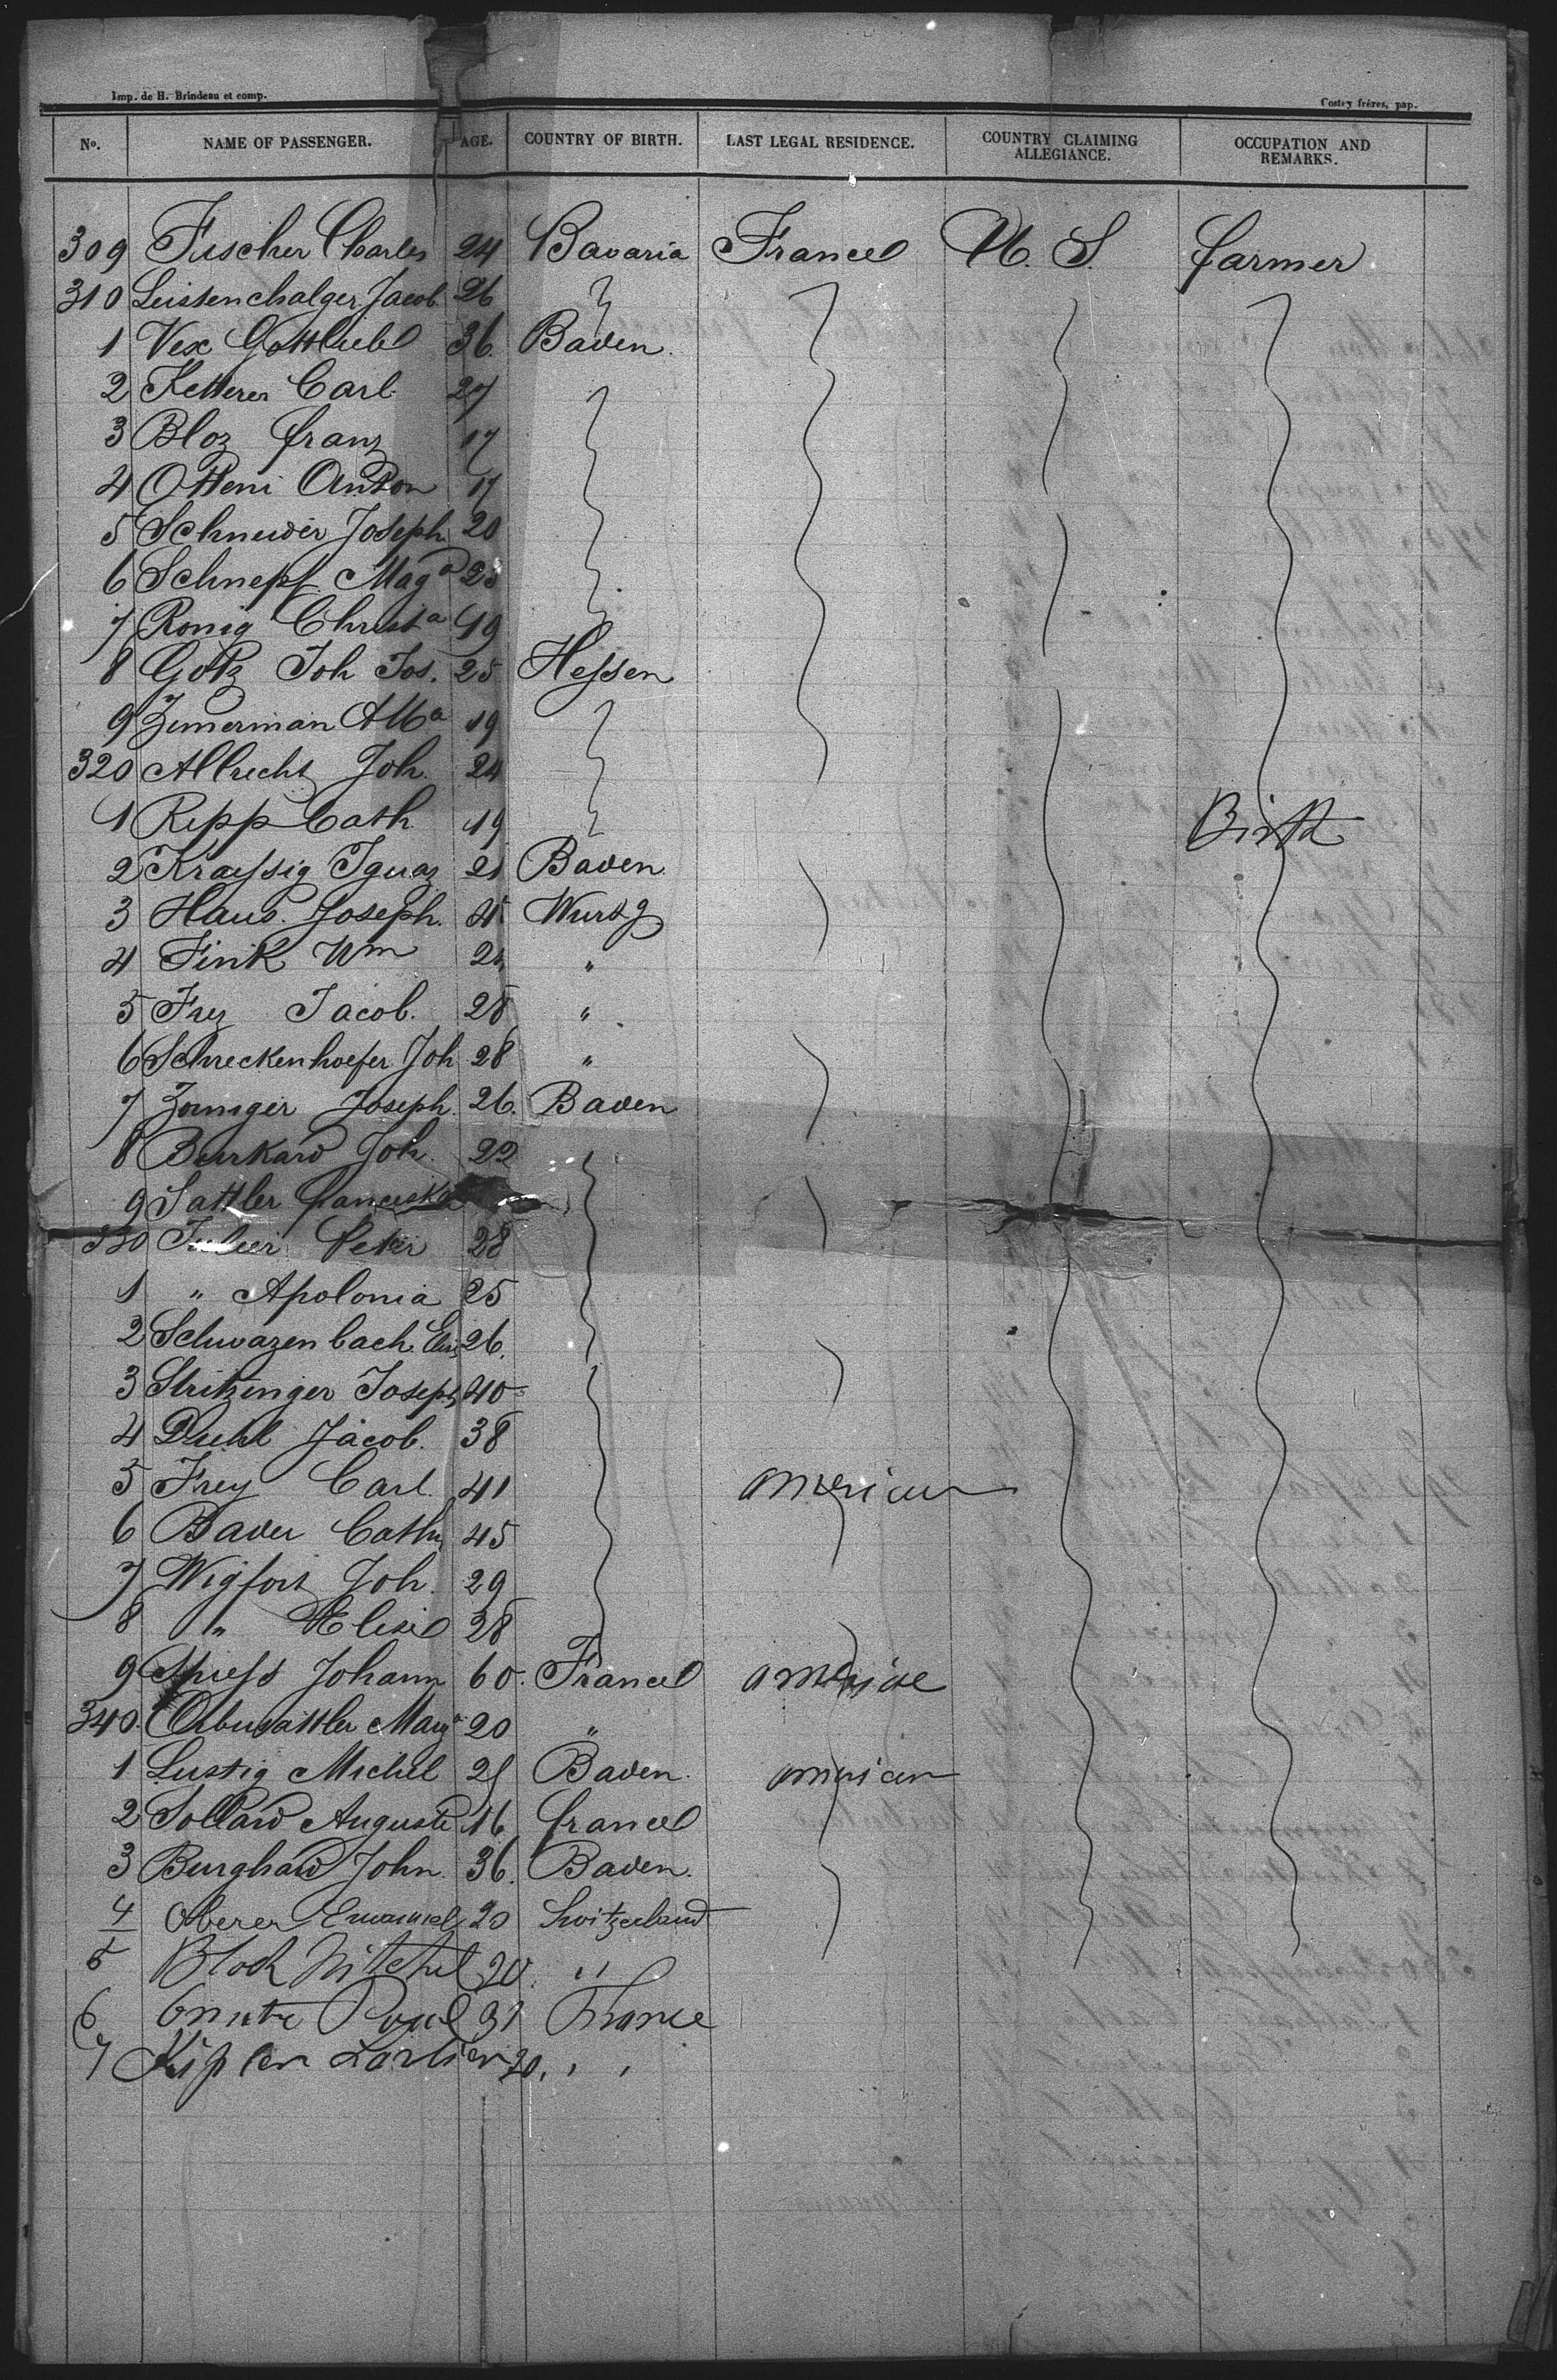 Imp. de H. Brindeau et comp. Costey frères, pap.
No. NAME OF PASSENGER. AGE. COUNTRY OF BIRTH. LAST LEGAL RESIDENCE. COUNTRY CLAIMING ALLEGIANCE. OCCUPATION AND REMARKS.
309 Fischer Charles 24 Bavaria France U. S. farmer
310 Leistenchalger Jacob 26
1 Vex Gottlieb 36 Baden
2 Ketterer Carl 27
3 Bloz franz 17
4 Otteni Anton 17
5 Schneider Joseph 20
6 Schnepf Maga
7 Ronig Christa 19
8 Gotz Joh Jos. 25 Hessen
9 Zimerman 19
320 Albrecht Joh. 24
1 Ripp Cath 19 Birth
2 Kraussig Ignaz 21 Baden
3 Haus Joseph. Wurtg
4 Fink Wm "
5 Frey Jacob. 28 "
6 Schreckenhoefer Joh 28 "
7 Joseph. 26. Baden
8 Burkard Joh. 22
9 Sattler franciska
330 Peter 28
1 " Apolonia 25
2 Schwazenbach 26.
3 Stritzinger Joseph 40
4 Diehl Jacob. 38
5 Frey Carl. 41 american
6 Bader Cath 45
7 Wigfort Joh. 29
8 " Elise 28
9 Spiess Johann 60. France
340. Obersattler 20 "
1 Lustig Michel Baden american
2 Sollard Auguste 16 france
3 Burghard John. 36. Baden.
4 Oberer Emanuel 20 Switzerland
5 Bloch 20. "
6 31 France
7 20. "